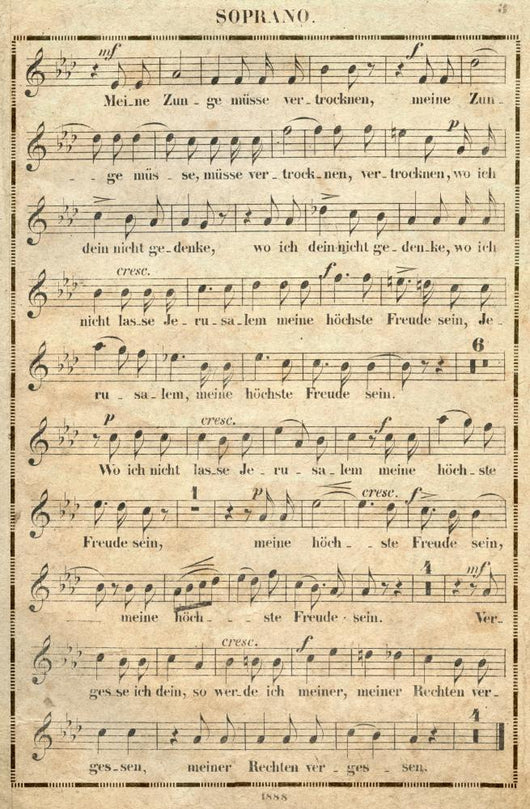 SOPRANO.
mf
Mei-ne Zun-ge müsse ver-trocknen, meine Zun-
p
ge müs-se, müsse ver-trock-nen, ver-trocknen, wo ich
dein nicht ge-denke, wo ich dein nicht ge-den-ke, wo ich
cresc. f
nicht las-se Je-ru-sa-lem meine höchste Freude sein, Je-
6
ru-sa-lem, meine höchste Freude sein.
p cresc. f
Wo ich nicht las-se Je-ru-sa-lem meine höch-ste
1 p cresc. f
Freude sein, meine höch-ste Freude sein,
4 mf
meine höch-ste Freude sein. Ver-
cresc. f
ges-se ich dein, so wer-de ich meiner, meiner Rechten ver-
4
ges-sen, meiner Rechten ver-ges-sen.
1888